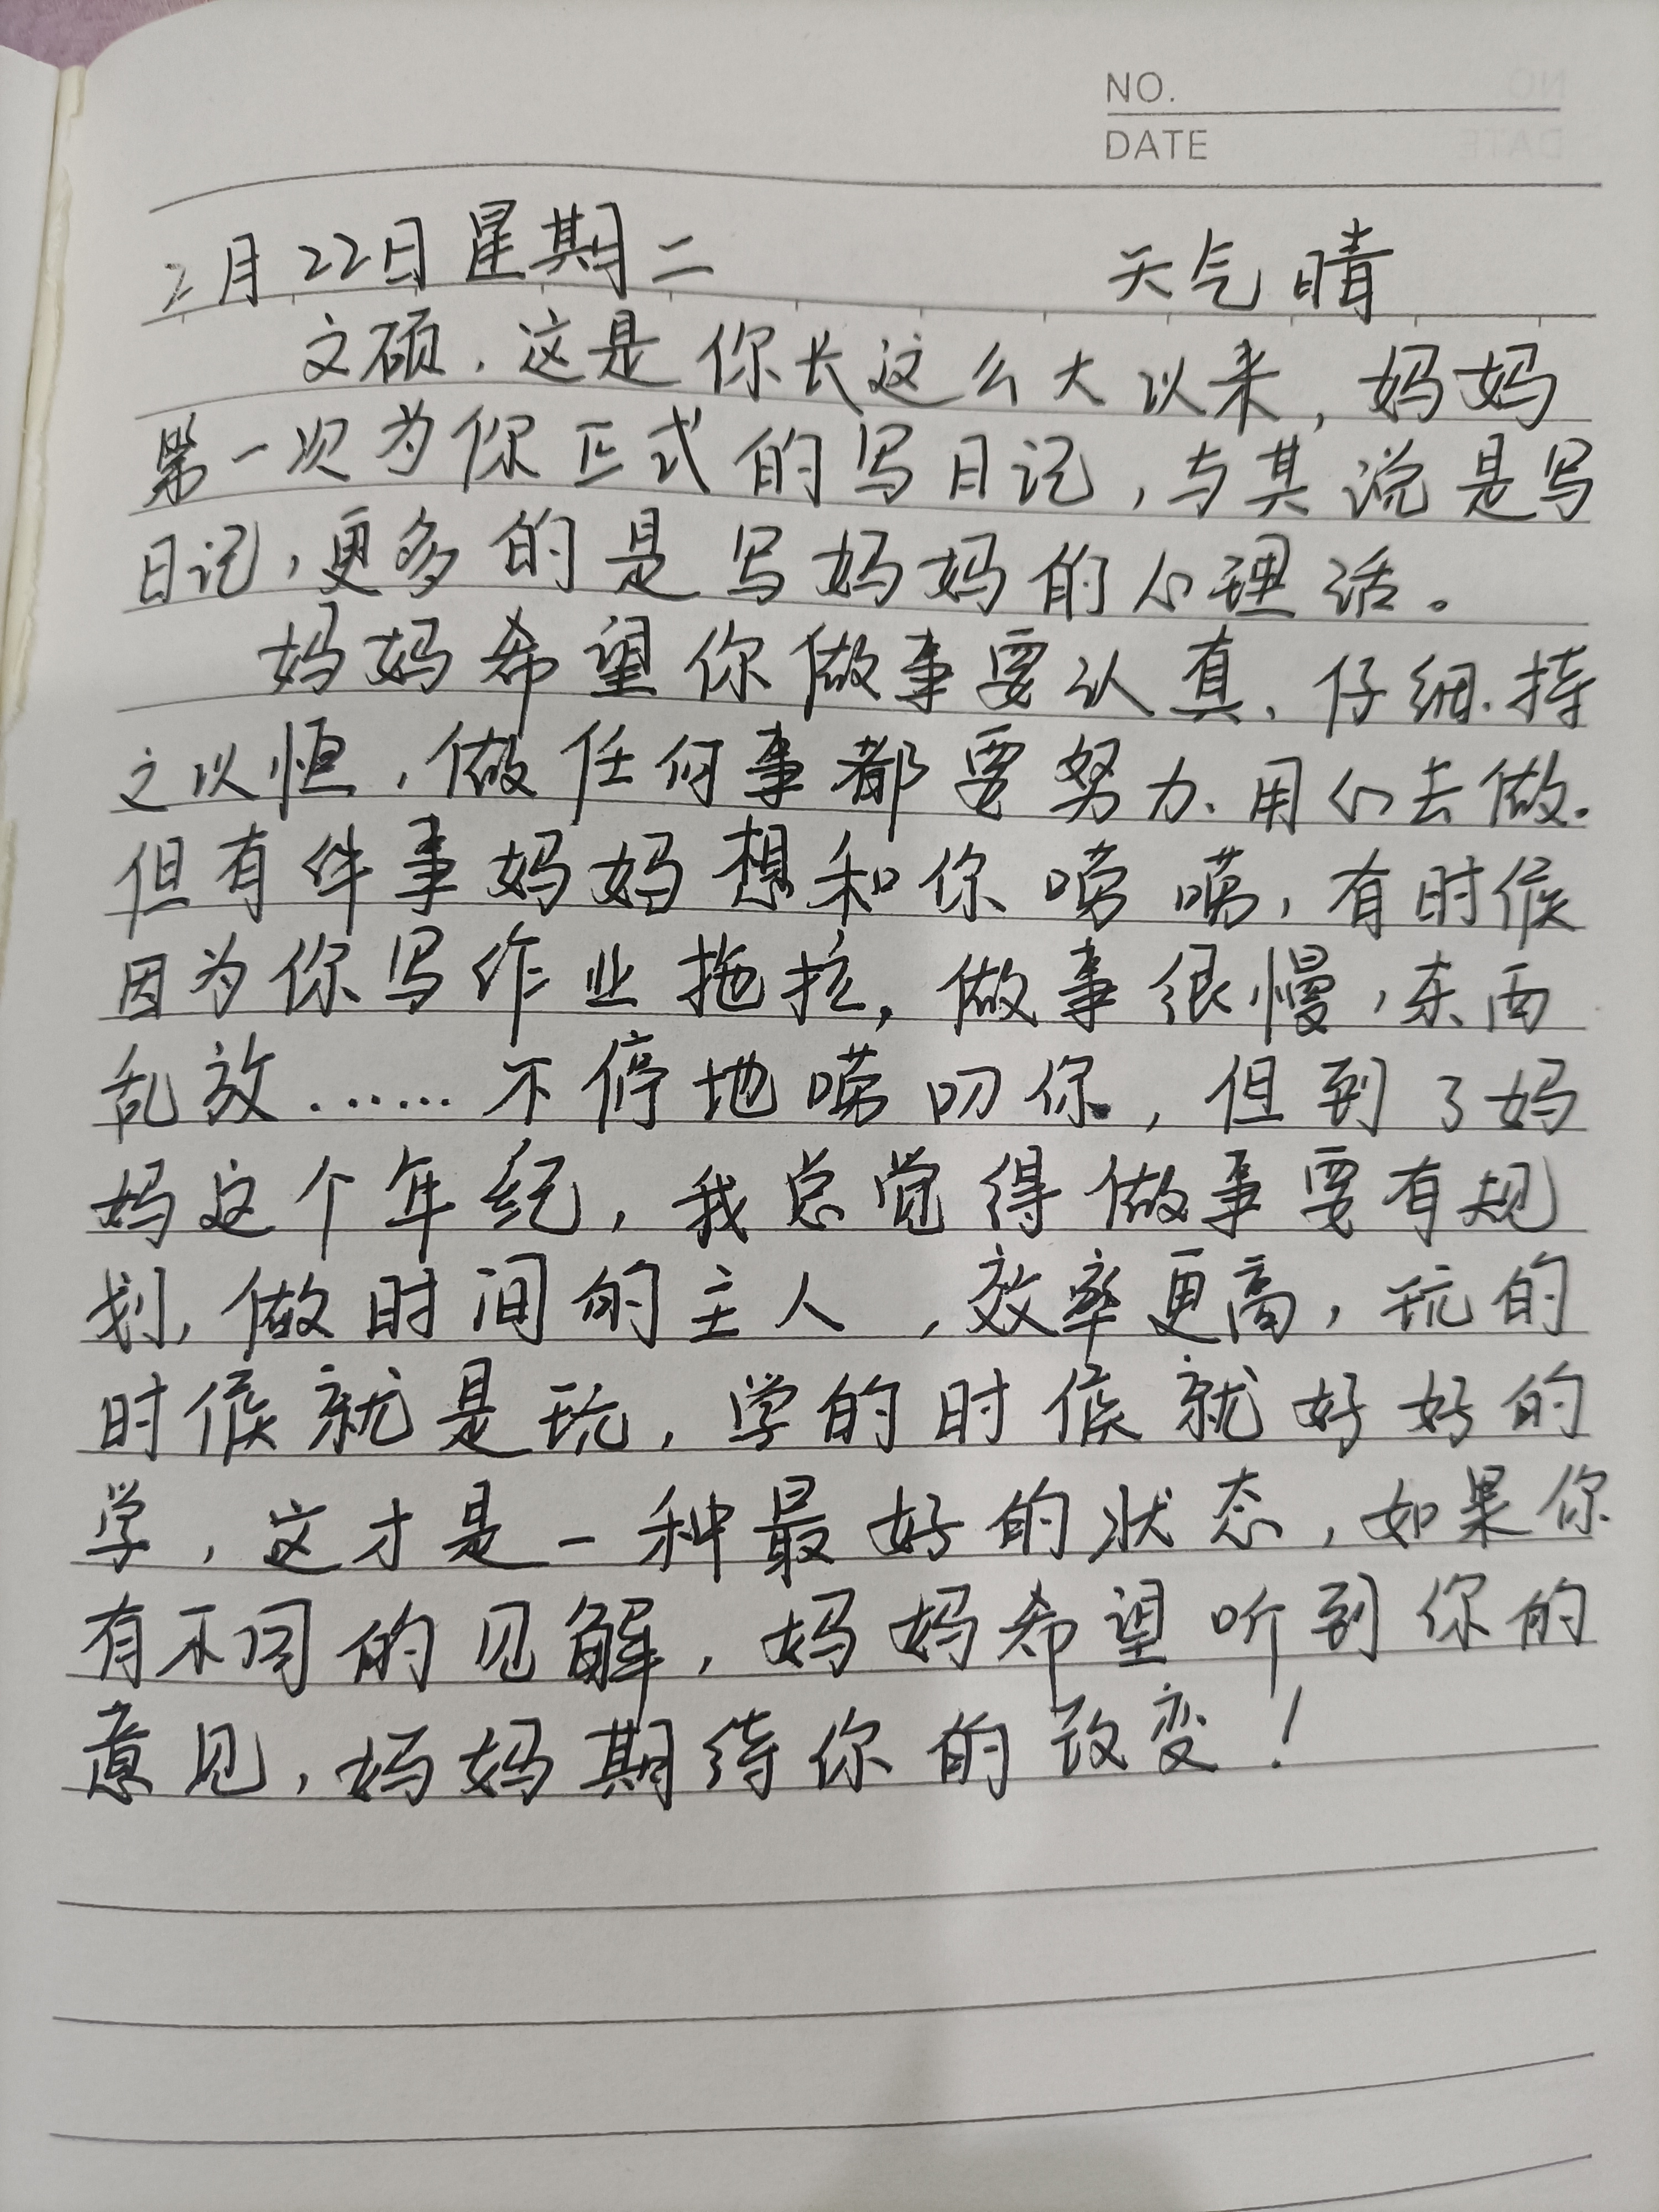 NO.
DATE
2月22日星期二 天气晴
文硕,这是你长这么大以来,妈妈
第一次为你正式的写日记,与其说是写
日记,更多的是写妈妈的心理话。
妈妈希望你做事要认真、仔细、持
之以恒,做任何事都要努力、用心去做.
但有件事妈妈想和你唠唠,有时候
因为你写作业拖拉,做事很慢,东西
乱放……不停地唠叨你,但到了妈
妈这个年纪,我总觉得做事要有规
划,做时间的主人,效率更高,玩的
时候就是玩,学的时候就好好的
学,这才是一种最好的状态,如果你
有不同的见解,妈妈希望听到你的
意见,妈妈期待你的改变!